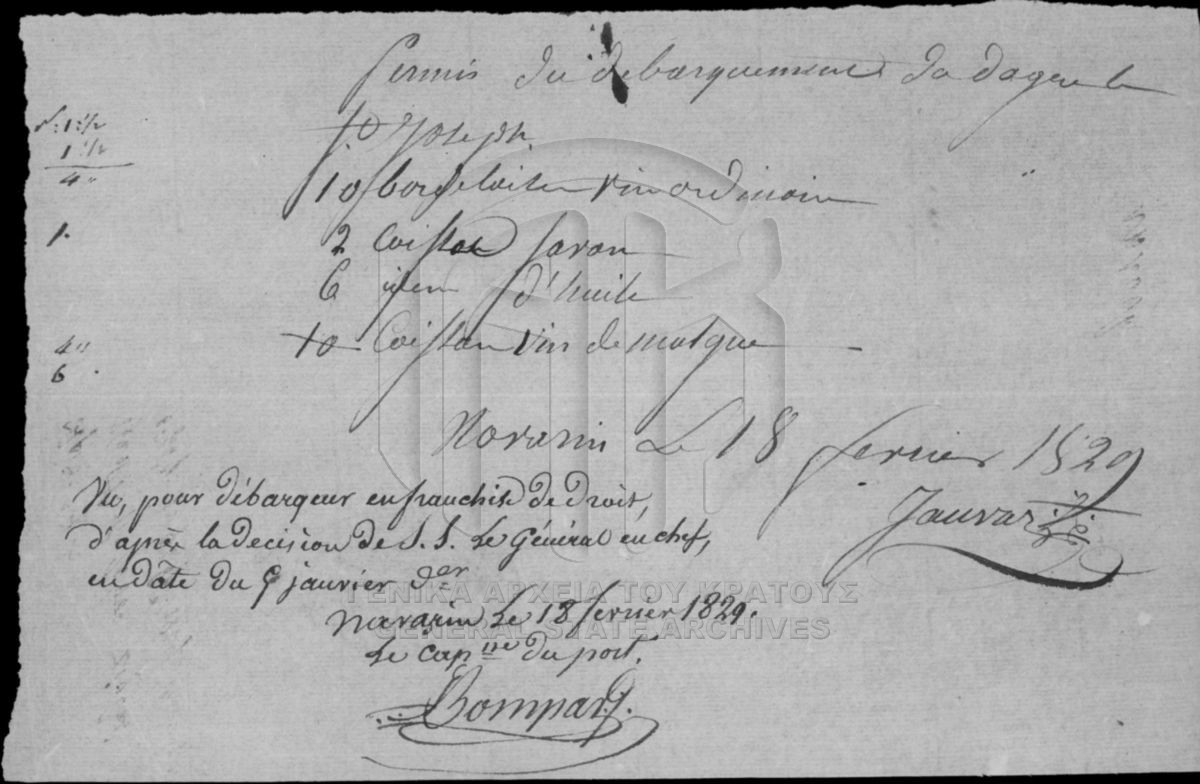 Permis du debarquement
St Joseph.
10 bordelaise vin ordinaire
2 Caisses savon
6 idem d'huile
10 Caisses vin de
Navarin Le 18 fevrier 1829
Jauvar
Vu, pour débarquer en franchise de droit,
d'après la decision de S. S. Le Général en chef,
en date du 9 janvier der
Navarin Le 18 fevrier 1829.
Le capne du port.
Bompard.
1 1/2
1 1/2
4"
1.
4"
6
ΓΕΝΙΚΑ ΑΡΧΕΙΑ ΤΟΥ ΚΡΑΤΟΥΣ
GENERAL STATE ARCHIVES